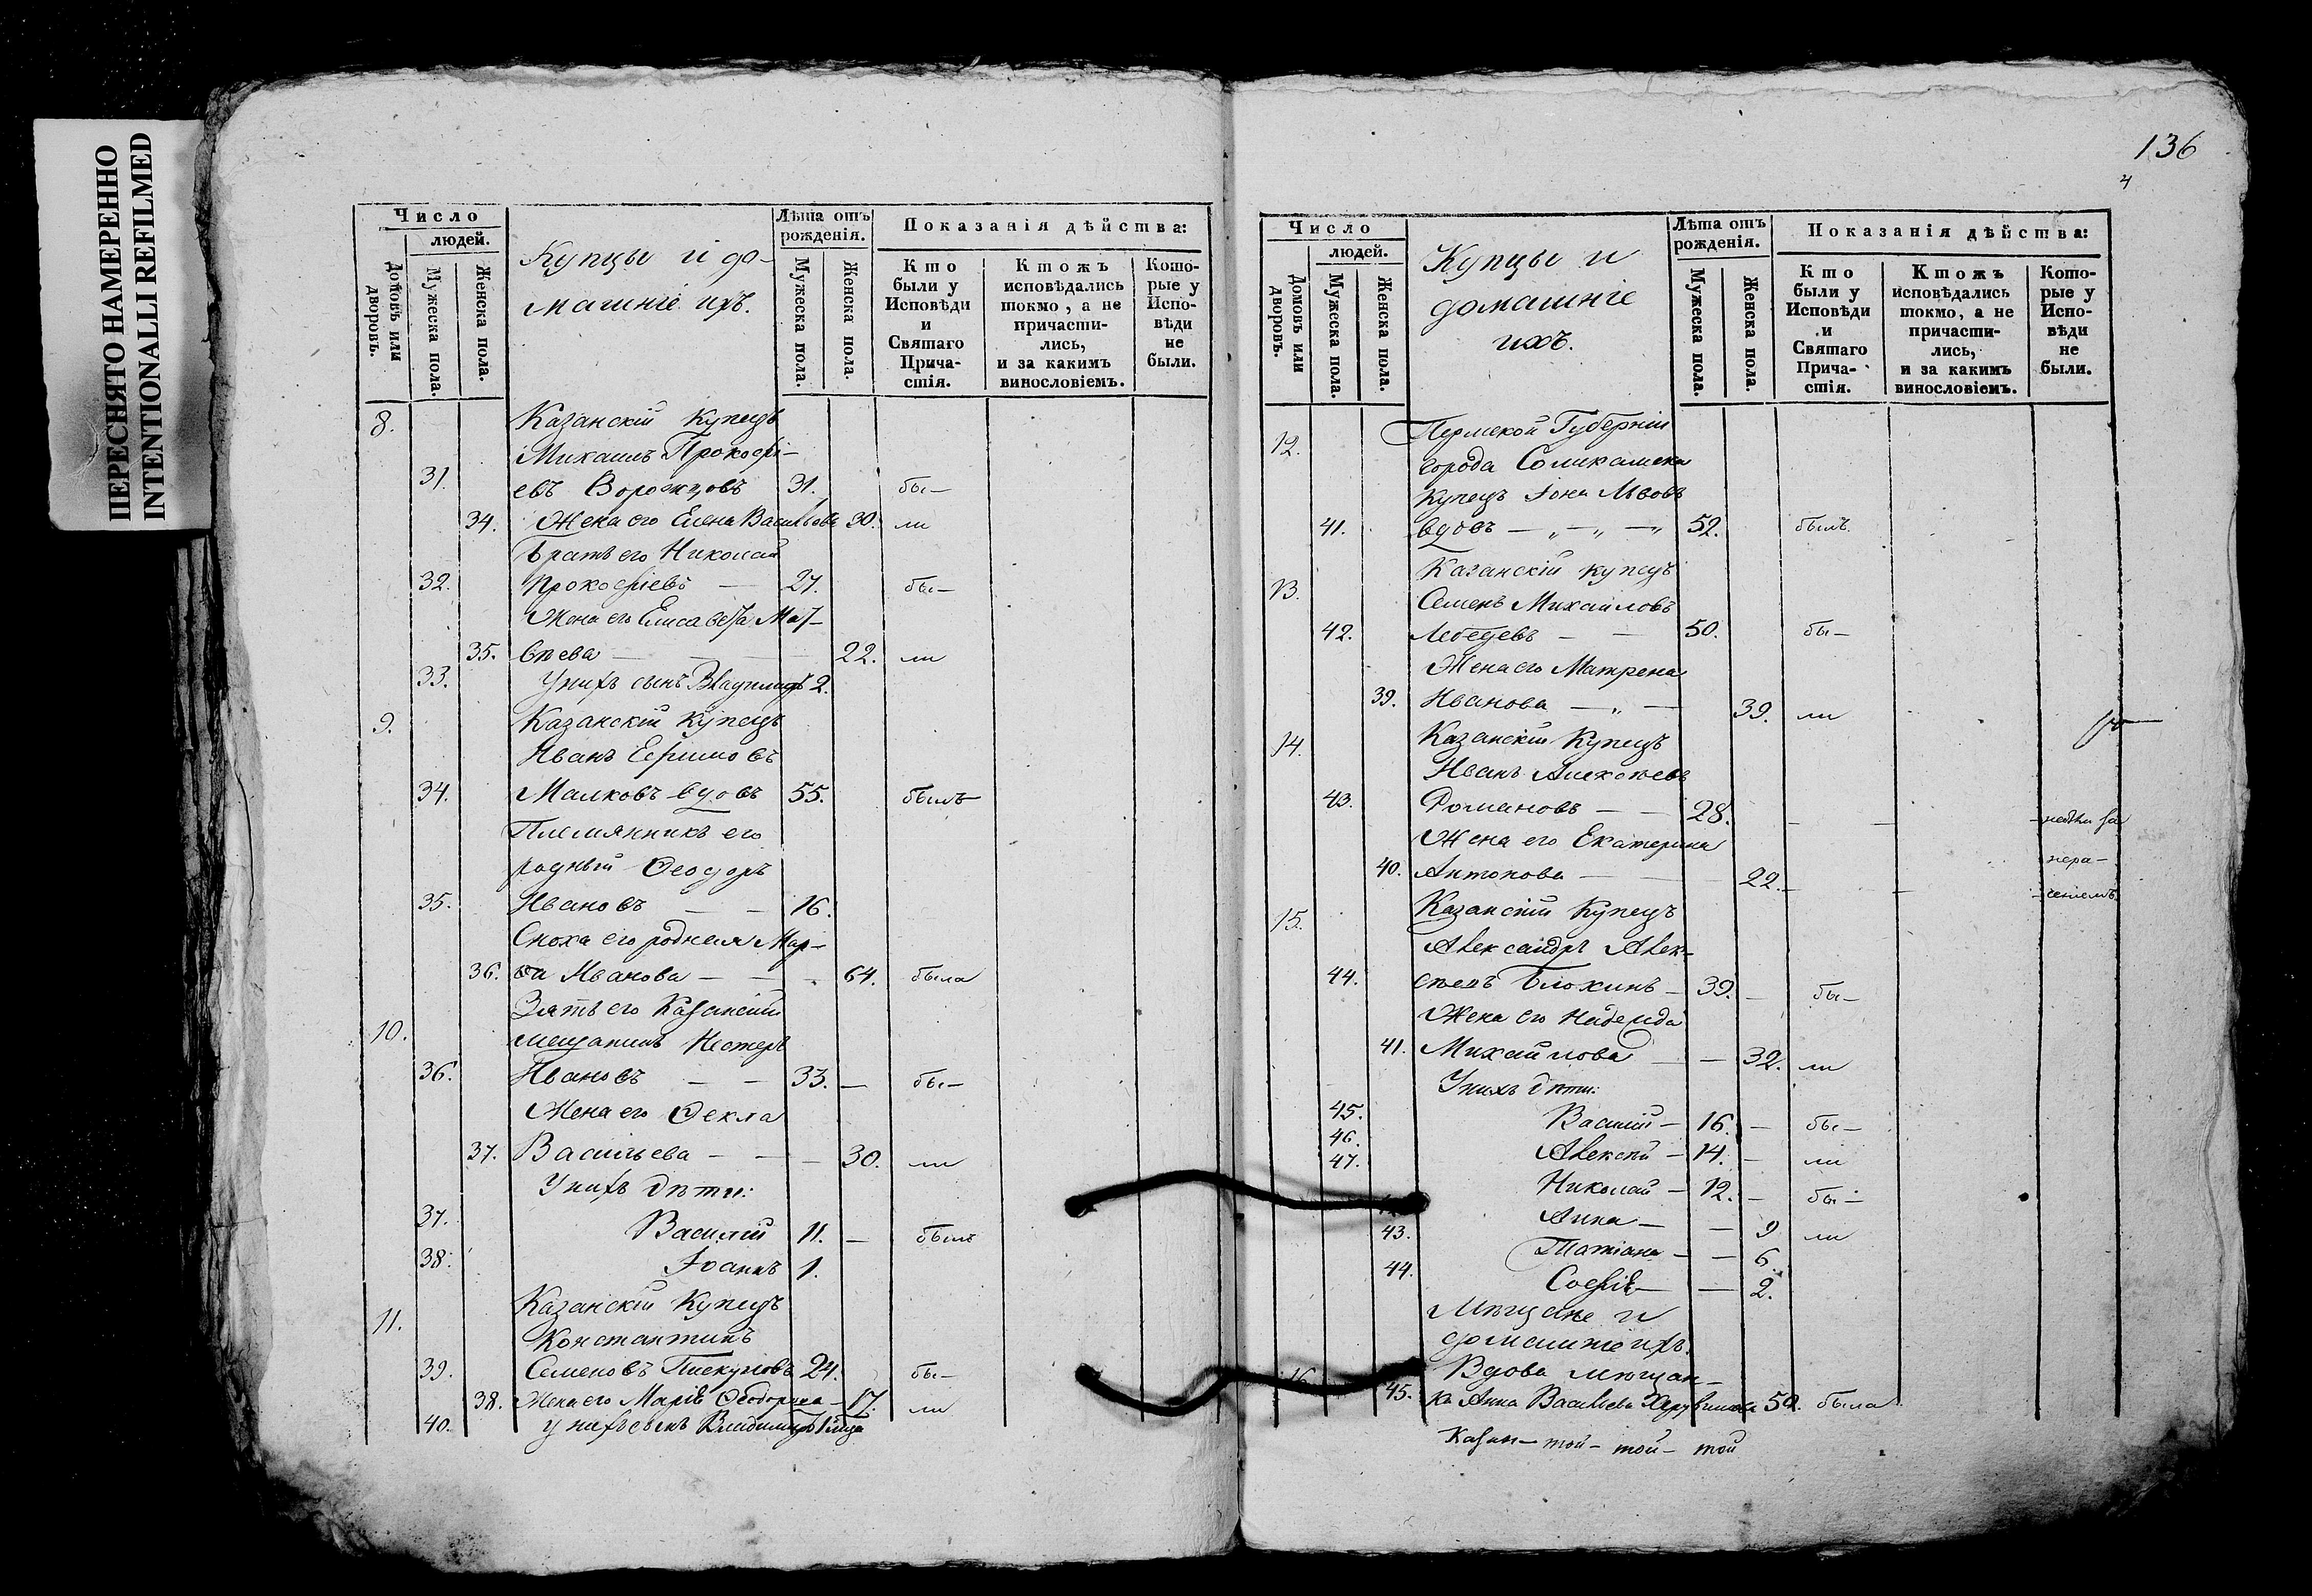 ПЕРЕСНЯТО НАМЕРЕННО
INTENTIONALLI REFILMED
Число
людей.
Домовъ или дворовъ.
Мужеска пола.
Женска пола.
Купцы и до-
машніе ихъ.
Лѣта отъ рожденія.
Мужеска пола.
Женска пола.
Показанія дѣйства:
Кто были у Исповѣди и Святаго Прича-стія.
Ктожъ исповѣдались токмо, а не причасти-лись, и за какимъ винословіемъ.
Кото-рые у Испо-вѣди не были.
8. Казанскій Купецъ
Михаилъ Прокофі-
31. евъ Ворожцовъ 31. бы-
34. Жена его Елена Васильева 30. ли
Братъ его Николай
32. Прокофіевъ — 27. бы-
Жена его Елисавета Мат-
35. вѣева — 22. ли
33. У нихъ сынъ Владимиръ 2.
9. Казанскій Купецъ
Иванъ Ефимовъ
34. Малковъ вдовъ 55. былъ
Племянникъ его
родный Ѳеодоръ
35. Ивановъ — — 16.
Сноха его родная Мар-
36. ѳа Иванова — — 64. была
Зять его Казанскій
10. мещанинъ Нестеръ
36. Ивановъ — — 33. — бы-
Жена его Ѳекла
37. Васильева — — — 30. ли
У нихъ дѣти:
37. Василій 11. — былъ
38. Іоаннъ 1.
11. Казанскій Купецъ
Константинъ
39. Семеновъ Пискуновъ 24. бы-
38. Жена его Марія Ѳеодорова — 17. ли
40. У нихъ сынъ Владимиръ 1
136
4
Число
людей.
Домовъ или дворовъ.
Мужеска пола.
Женска пола.
Купцы и
домашніе
ихъ.
Лѣта отъ рожденія.
Мужеска пола.
Женска пола.
Показанія дѣйства:
Кто были у Исповѣди и Святаго Прича-стія.
Ктожъ исповѣдались токмо, а не причасти-лись, и за какимъ винословіемъ.
Кото-рые у Испо-вѣди не были.
12. Пермской Губерніи
города Соликамска
купецъ Іона Львовъ
41. вдовъ — „ — „ — „ 52. былъ
13. Казанскій купецъ
Семенъ Михаиловъ
42. Лебедевъ — — 50. бы-
Жена его Матрена
39. Иванова — „ — 39. ли
14. Казанскій Купецъ
Иванъ Алексѣевъ
43. Романовъ — — 28. — — за
Жена его Екатерина
нера-
40. Антонова — — 22. — —
ченіемъ
15. Казанскій Купецъ
Александръ Алек-
44. сѣевъ Блохинъ — 39. — бы-
Жена его Надежда
41. Михайлова — — 32. ли
У нихъ дѣти:
45. Василій — 16. — бы-
46. Алексѣй — 14. — ли
47. Николай — 12. — бы-
Анна — — 9 ли
43. Татіана — — 6.
44. Софія — — 2.
Мѣщане и
домашніе ихъ.
16. Вдова мѣщан-
45. ка Анна Васильева 50. была
Казан- той- той- той